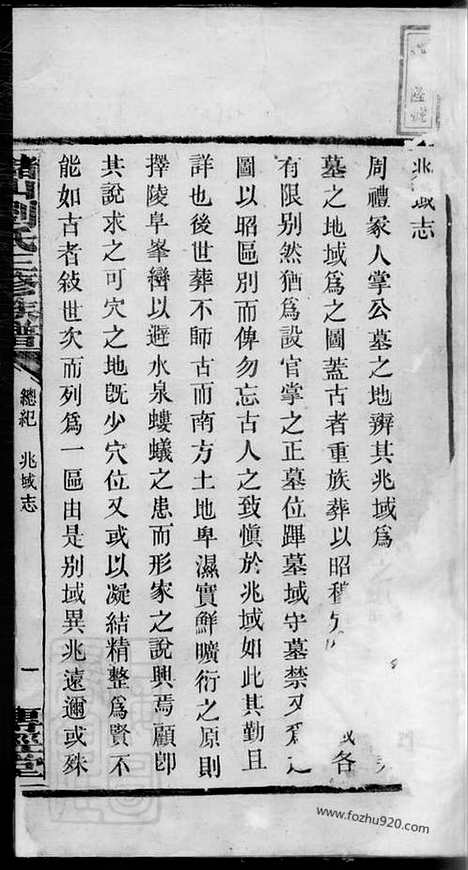 兆域志
周禮冢人掌公墓之地辨其兆域爲
墓之地域爲之圖蓋古者重族葬以昭穆 域各
有限別然猶爲設官掌之正墓位蹕墓域守墓禁又爲之
圖以昭區別而俾勿忘古人之致慎於兆域如此其勤且
詳也後世葬不師古而南方土地卑濕實鮮曠衍之原則
擇陵阜峯巒以避水泉螻蟻之患而形家之說興焉顧卽
其說求之可穴之地旣少穴位又或以凝結精整爲賢不
能如古者敍世次而列爲一區由是別域異兆遠邇或殊
劉氏三修族譜
總紀 兆域志
一
www.fozhu920.com